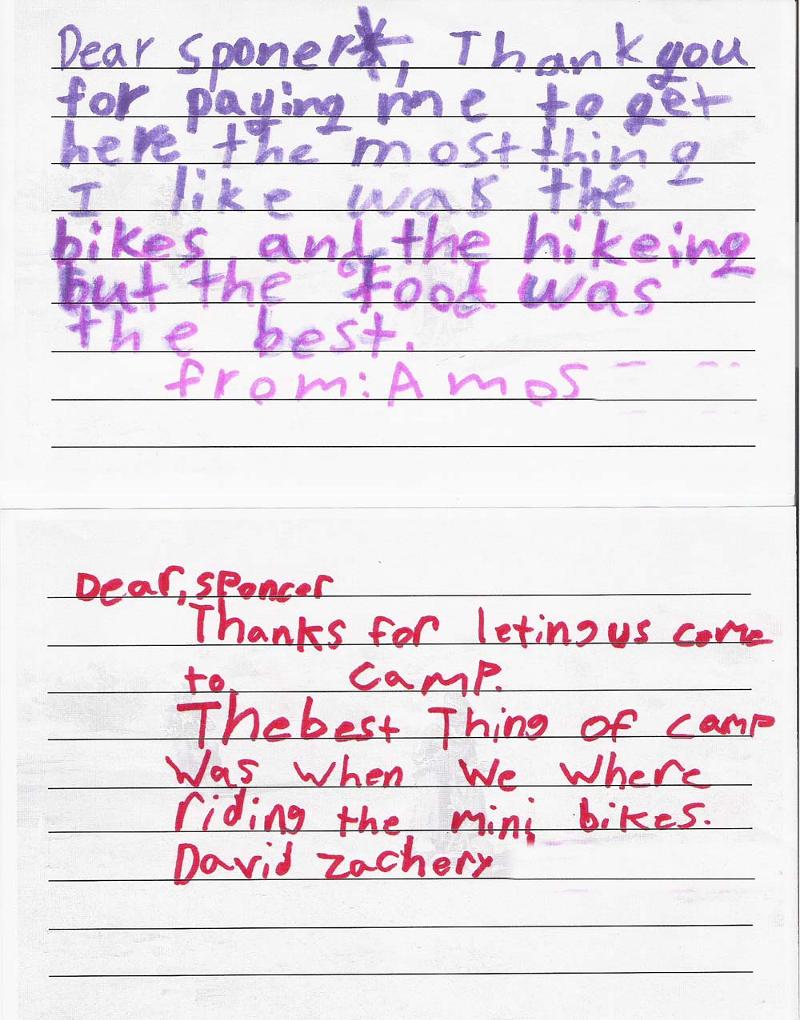 Dear sponer*, Thank you
for paying me to get
here the most thing
I like was the
bikes and the hikeing
but the food was
the best.
from: Amos
Dear, sponcer
Thanks for leting us come
to camp.
The best Thing of camp
Was when We Where
riding the mini bikes.
David zachery